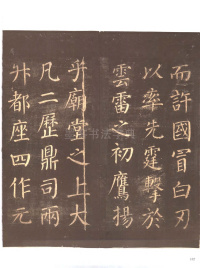 而許國冒白刃
以率先霆擊於
雲雷之初鷹揚
乎廟堂之上大
凡二歷鼎司兩
升都座四作元